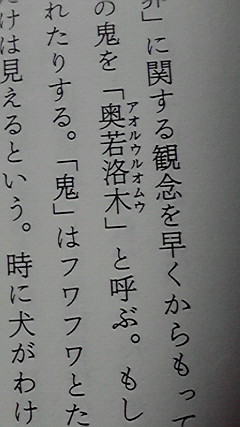 界」に関する観念を早くからもって
の鬼を「奥若洛木」と呼ぶ。もし
アオルウルオムウ
れたりする。「鬼」はフワフワとた
だけは見えるという。時に犬がわけ